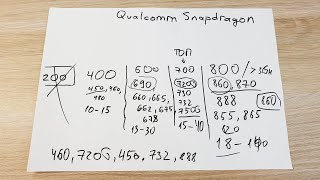 Qualcomm Snapdragon
ТОП
200 400 600 700 800/>збн
450, 460, 480
10-15
690
660, 665, 662, 675
678
13-30
720G
730
732
750G
15-40
860, 870
888 860
855, 865
18-
460, 720G, 450, 732, 888